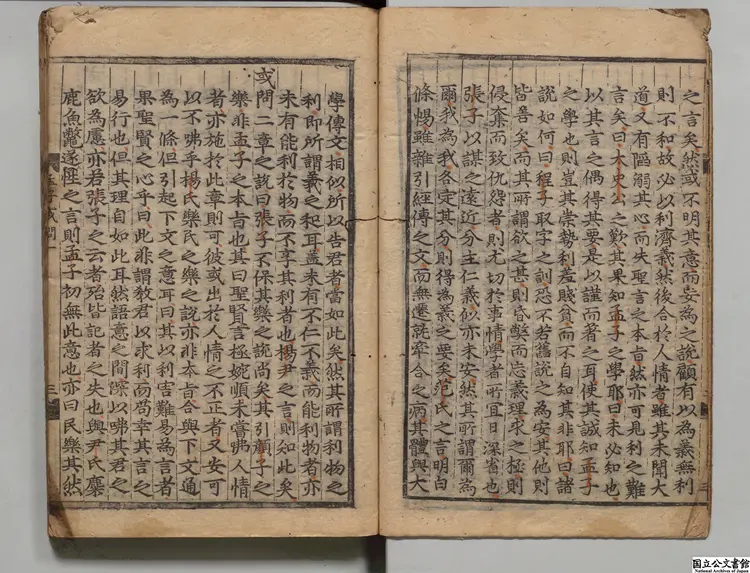 之言矣然或不明其意而妄為之說顧有以為義無利
則不和故必以利濟義然後合於人情者雖其未聞大
道又有陷溺其心而失聖言之本旨然亦可見利之難
言矣曰太史公之歎其果知孟子之學耶曰未必知也
以其言之偶得其要是以謹而著之耳使其誠知孟子
之學也則豈其崇勢利羞賤貧而不自知其非耶曰諸
說如何曰程子取字之訓恐不若舊說之為安其他則
皆善矣而其所謂欲之甚則昏蔽而忘義理求之極則
侵奪而致仇怨者則尤切於事情學者所宜日深省也
張子以謀之遠近分主仁義似亦未安然其所謂爾為
爾我為我各定其分則得為義之要矣范氏之言明白
條暢雖雜引經傳之文而無遷就牽合之病其體與大
學傳文相似所以告君者當如此矣然其所謂利物之
利即所謂義之和耳蓋未有不仁不義而能利物者亦
未有能利於物而不享其利者也楊尹之言則知此矣
或問二章之說曰張子不保其樂之說尚矣其引顏子之
樂非孟子之本旨也其曰聖賢言極婉順未嘗咈人情
者亦施於此章則可彼或出於人情之不正者又安可
以不咈乎楊氏樂民之樂之說亦非本旨合與下文通
為一條但引起下文之意耳曰其以利害難易為言者
果聖賢之心乎曰此非謂教君以求利而苟幸其言之
易行也但其理自如此耳然語意之間深以咈其君之
欲為慮亦若張子之云者殆皆記者之失也與尹氏麋
鹿魚鱉遂性之言則孟子初無此意也亦曰民樂其然
孟子或問一
三
国立公文書館
National Archives of Japan